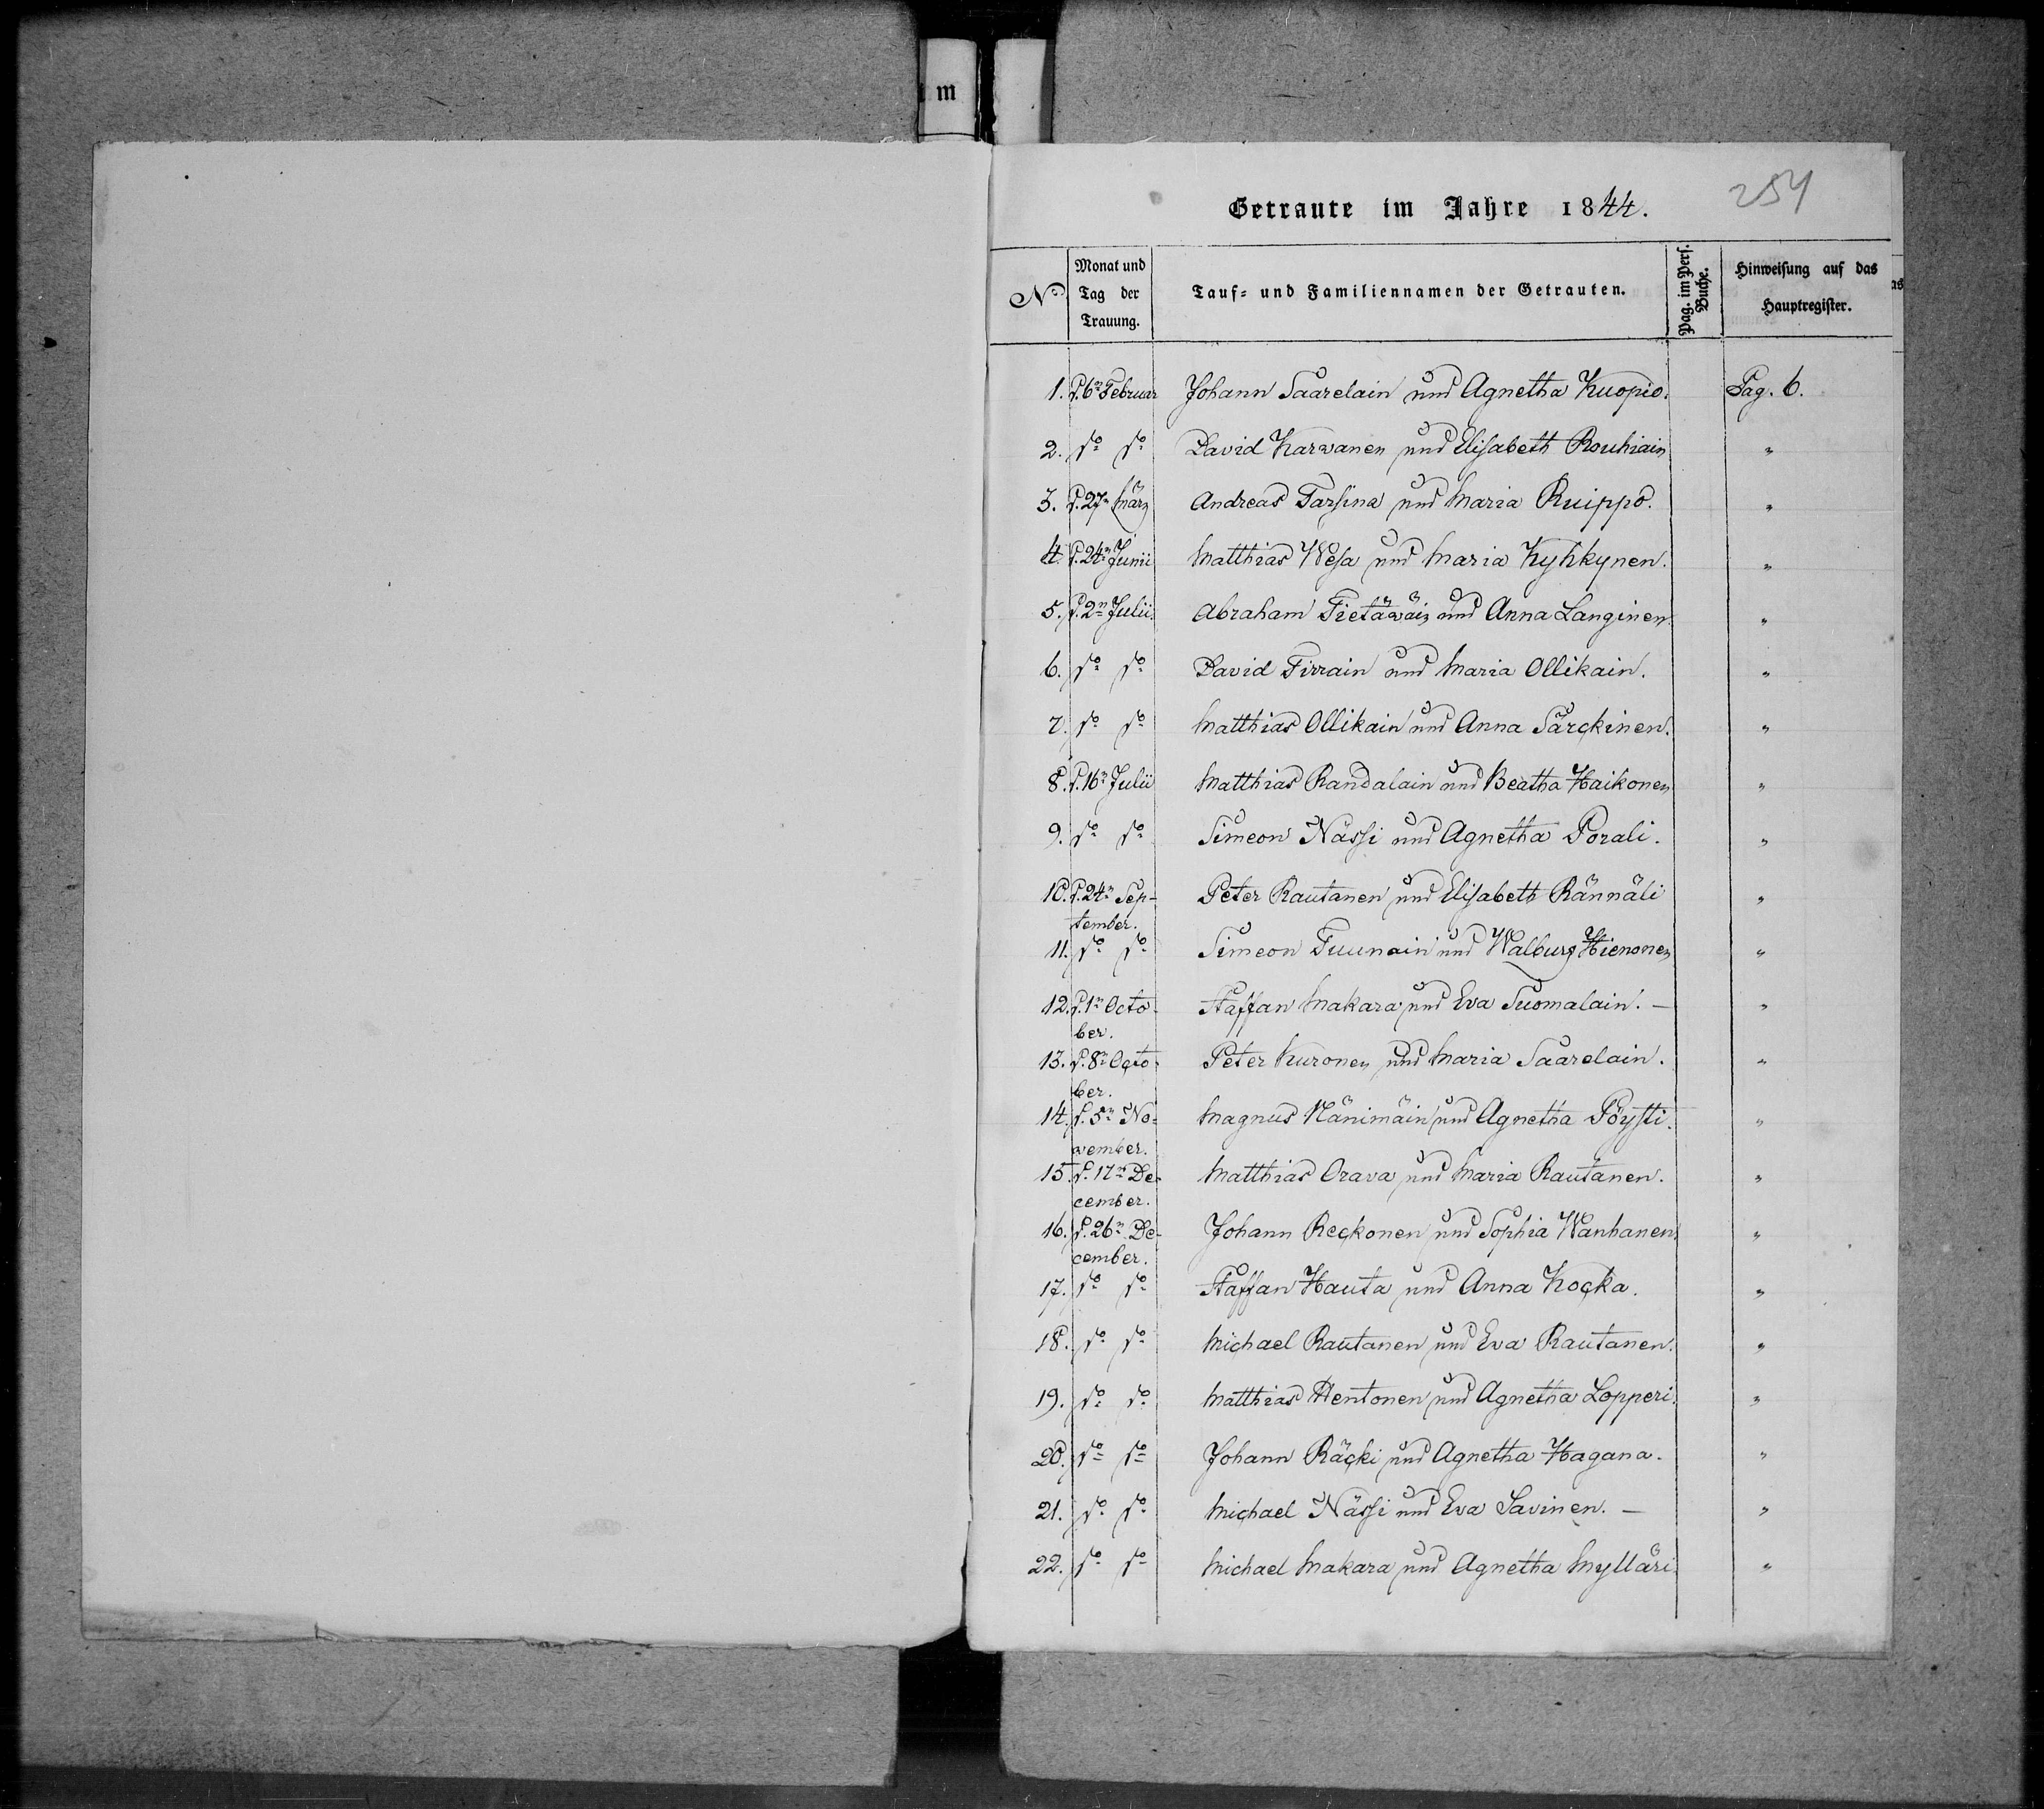 m
Getraute im Jahre 1844.
254
No
Monat und Tag der Trauung.
Tauf- und Familiennamen der Getrauten.
Pag. im Pers. Buche.
Hinweisung auf das Hauptregister.
as
1. d. 6n Februar Johann Saarelain und Agnetha Kuopio. Pag. 6.
2. do do David Karwanen und Elisabeth Rouhiain "
3. d. 27n März Andreas Tarsina und Maria Ruippo. "
4. d. 24n Junii Matthias Wesa und Maria Kyhkynen. "
5. d. 2n Julii. Abraham Tietäwäin und Anna Langinen. "
6. do do David Firrain und Maria Ollikain. "
7. do do Matthias Ollikain und Anna Särckinen. "
8. d. 16n Julii Matthias Randalain und Beatha Haikonen "
9. do do Simeon Nässi und Agnetha Porali. "
10. d. 24n September. Peter Rautanen und Elisabeth Rännäli "
11. do do Simeon Tuunain und Walburg Hienonen "
12. d. 1n October. Staffan Makara und Eva Suomalain. — "
13. d. 8n October. Peter Kuronen und Maria Saarelain. "
14. d. 5n November. Magnus Nänimäin und Agnetha Pöysti. "
15. d. 17n December. Matthias Orava und Maria Rautanen. "
16. d. 26n December. Johann Reckonen und Sophia Wanhanen "
17. do do Staffan Hauta und Anna Kocka. "
18. do do Michael Rautanen und Eva Rautanen. "
19. do do Matthias Hentonen und Agnetha Lopperi. "
20. do do Johann Räcki und Agnetha Hagana. "
21. do do Michael Nässi und Eva Savinen. — "
22. do do Michael Makara und Agnetha Mylläri. "